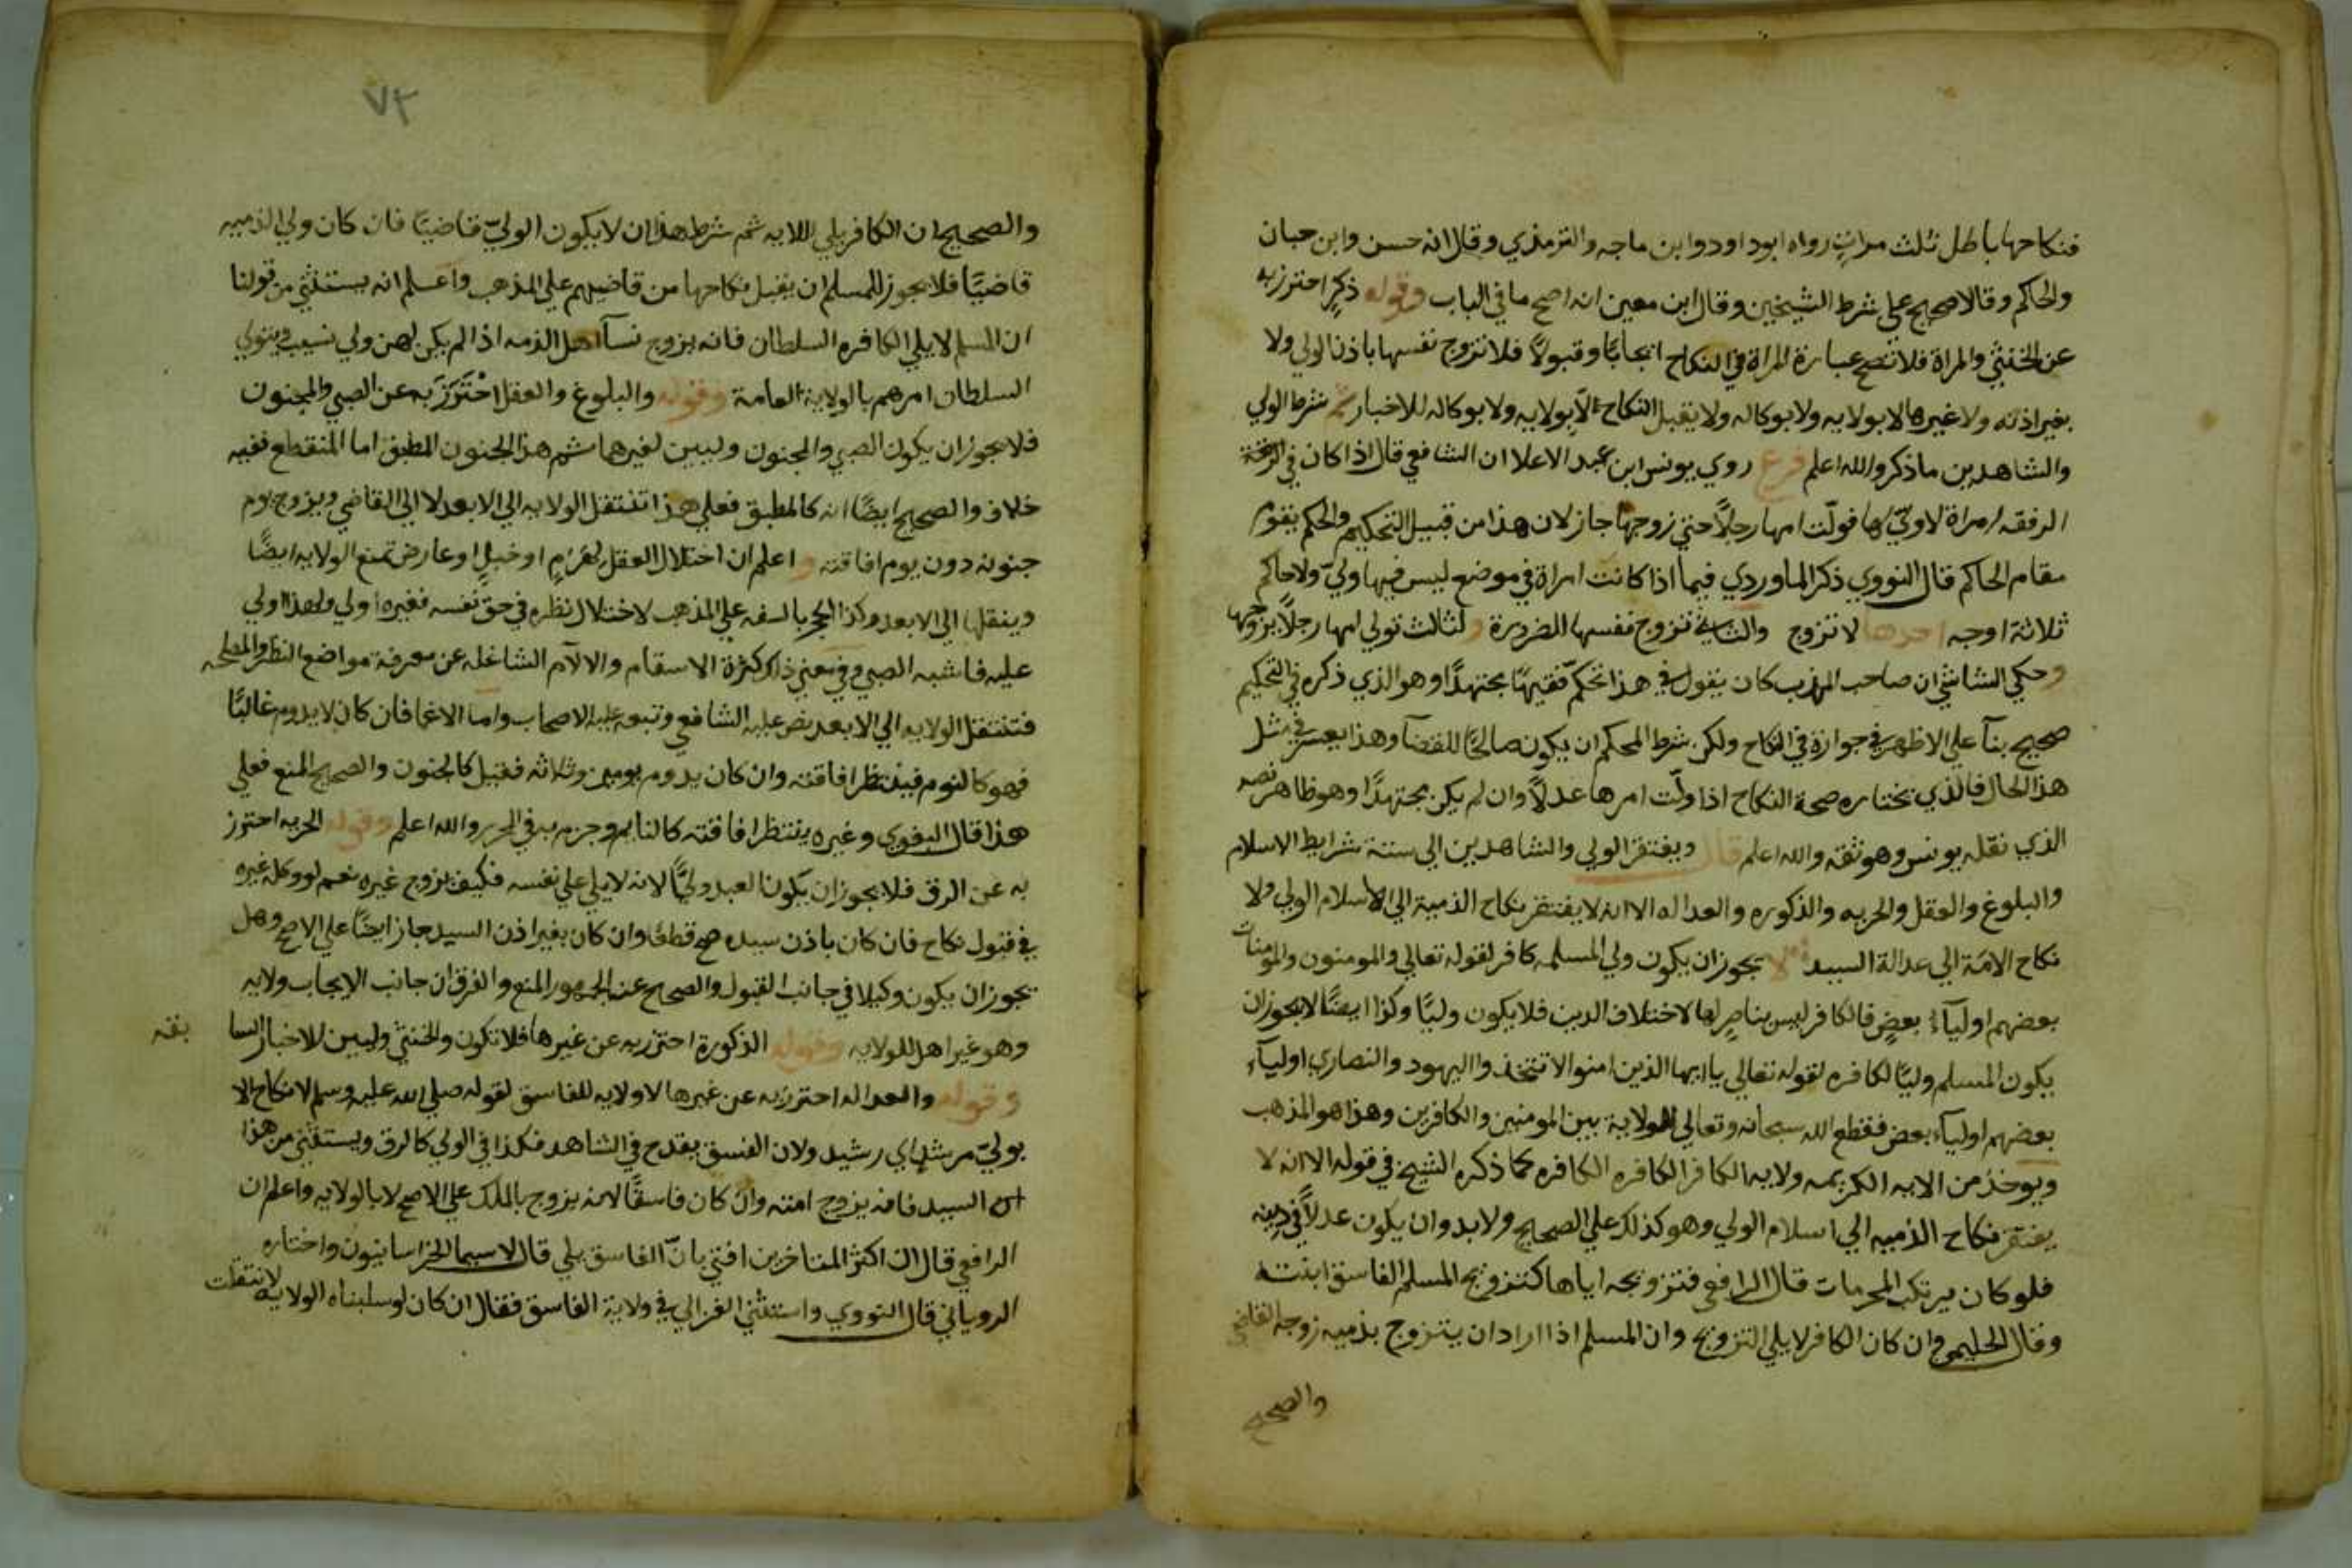 فنكاحها باطل ثلث مرات رواه ابو داود وابن ماجه والترمذي وقال انه حسن وابن حبان
والحاكم وقالا صحيح علي شرط الشيخين وقال ابن معين انه اصح ما في الباب وقوله ذكر احترز به
عن الخنثي والمراة فلا تصح عبارة المراة في النكاح ايجابًا وقبولًا فلا تزوج نفسها باذن الولي ولا
بغير اذنه ولا غيرها لا بولايه ولا بوكاله ولا يقبل النكاح لا بولايه ولا بوكاله للاخبار ثم شرط الولي
والشاهدين ما ذكر والله اعلم فرع روي يونس ابن عبد الاعلا ان الشافعي قال اذا كان في الرفقة
الرفقه امراة لا ولي لها فولّت امرها رجلًا حتي زوجها جاز لان هذا من قبيل التحكيم والحكم يقوم
مقام الحاكم قال النووي ذكر الماوردي فيما اذا كانت امراة في موضع ليس فيها وليّ ولا حاكم
ثلاثة اوجه احدها لا تزوج والثاني تزوج نفسها للضرورة والثالث تولي امرها رجلًا يزوجها
وحكي الشاشي ان صاحب المهذب كان يقول في هذا تحكم فقيهًا مجتهدًا وهو الذي ذكره في التحكيم
صحيح بنآ علي الاظهر في جوازه في النكاح ولكن شرط المحكم ان يكون صالحًا للقضآ وهذا يعسر في مثل
هذا الحال فالذي نختاره صحة النكاح اذا ولّت امرها عدلًا وان لم يكن مجتهدًا وهو ظاهر نصه
الذي نقله يونس وهو ثقه والله اعلم قال ويفتقر الولي والشاهدين الي ستة شرايط الاسلام
والبلوغ والعقل والحريه والذكوره والعداله الا انه لا يفتقر نكاح الذمية الي الاسلام الولي ولا
نكاح الامة الي عدالة السيد لا يجوز ان يكون ولي المسلمه كافر لقوله تعالي والمومنون والمومنات
بعضهم اوليآء بعض فالكافر ليس بناصر لها لاختلاف الدين فلا يكون وليًا وكذا ايضًا لا يجوز ان
يكون المسلم وليًا لكافره لقوله تعالي يا ايها الذين امنوا لا تتخذوا اليهود والنصاري اوليآء
بعضهم اوليآء بعض فقطع الله سبحانه وتعالي الولاية بين المومنين والكافرين وهذا هو المذهب
ويوخذ من الايه الكريمه ولايه الكافر الكافره الكافره كما ذكره الشيخ في قوله الا انه لا
يفتقر نكاح الذميه الي اسلام الولي وهو كذلك علي الصحيح ولا بد وان يكون عدلًا في دينه
فلو كان يرتكب المحرمات قال الرافعي فتزويجه اياها كتزويج المسلم الفاسق ابنته
وقال الحليمي وان كان الكافر لا يلي التزويج وان المسلم اذا اراد ان يتزوج بذميه زوجه القاضي
والصحيح
٧٢
والصحيح ان الكافر يلي للايه ثم شرط هذا ان لا يكون الوليّ قاضيًا فان كان ولي الذميه
قاضيًا فلا يجوز للمسلم ان يقبل نكاحها من قاضيهم علي المذهب واعلم انه يستثني من قولنا
ان المسلم لا يلي الكافره السلطان فانه يزوج نسآ اهل الذمه اذا لم يكن لهن ولي نسيب ويتولي
السلطان امرهم بالولاية العامة وقوله والبلوغ والعقل احْتَرَزَ به عن الصبي والمجنون
فلا يجوز ان يكون الصبي والمجنون وليين لغيرهما ثم هذا الجنون المطبق اما المنقطع ففيه
خلاف والصحيح ايضًا انه كالمطبق فعلي هذا تنتقل الولايه الي الابعد لا الي القاضي ويزوج يوم
جنونه دون يوم افاقته واعلم ان اختلال العقل لهَرَمٍ او خبلٍ او عارض تمنع الولايه ايضًا
وينقلها الي الابعد وكذا الحجر بالسفه علي المذهب لاختلال نظره في حق نفسه فغيره اولي ولهذا ولي
عليه فاشبه الصبي وفي معني ذلك كثرة الاسقام والالام الشاغله عن معرفة مواضع النظر والمصلحه
فتنتقل الولايه الي الابعد نص عليه الشافعي وتبعه عليه الاصحاب واما الاغما فان كان لا يدوم غالبًا
فهو كالنوم فينتظر افاقته وان كان يدوم يومين وثلاثه فقيل كالجنون والصحيح المنع فعلي
هذا قال البغوي وغيره ينتظر افاقته كالنايم وجزم به في المحرر والله اعلم وقوله الحريه احترز
به عن الرق فلا يجوز ان يكون العبد وليًّا لانه لا يلي علي نفسه فكيف يزوج غيره نعم لو وكله غيره
في قبول نكاح فان كان باذن سيده صح قطعًا وان كان بغير اذن السيد جاز ايضًا علي الاصح وهل
يجوز ان يكون وكيلا في جانب القبول والصحيح عند الجمهور المنع والفرق ان جانب الايجاب ولايه
وهو غير اهل للولايه وقوله الذكورة احترز به عن غيرها فلا تكون والخنثي وليين للاخبار السا بقه
وقوله والعداله احترز به عن غيرها لا ولايه للفاسق لقوله صلي الله عليه وسلم لا نكاح الا
بوليّ مرشد اي رشيد ولان الفسق يقدح في الشاهد فكذا في الولي كالرق ويستثني من هذا
السيد فانه يزوج امته وان كان فاسقًا لانه يزوج بالملك علي الاصح لا بالولايه واعلم ان
الرافعي قال ان اكثر المتاخرين افتي بانّ الفاسق يلي قال لا سيما الخراسانيون واختاره
الروياني قال النووي واستثني الغزالي في ولاية الفاسق فقال ان كان لو سلبناه الولايه لانتقلت